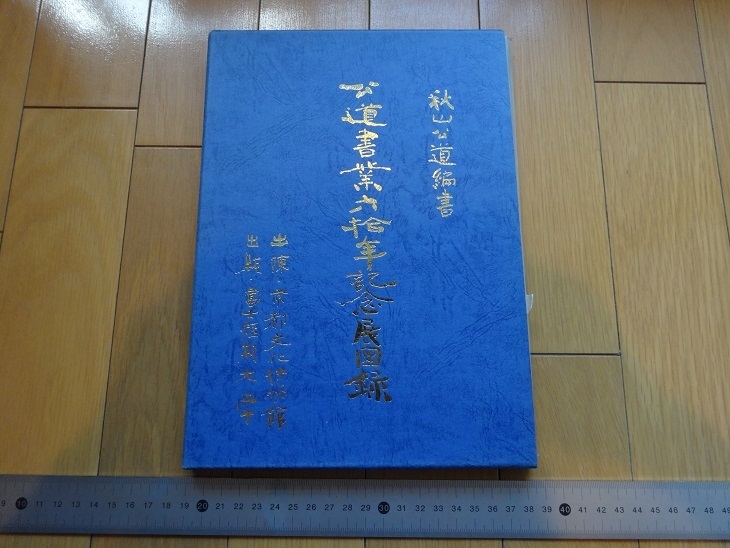 秋山公道編書
公道書業六拾年記念展図録
出陳・京都文化博物館
出
9 10 11 12 13 14 15 16 17 18 19 20 21 22 23 24 25 26 27 28 29 30 31 32 33 34 35 36 37 38 39 40 41 42 43 44 45 46 47 48 49